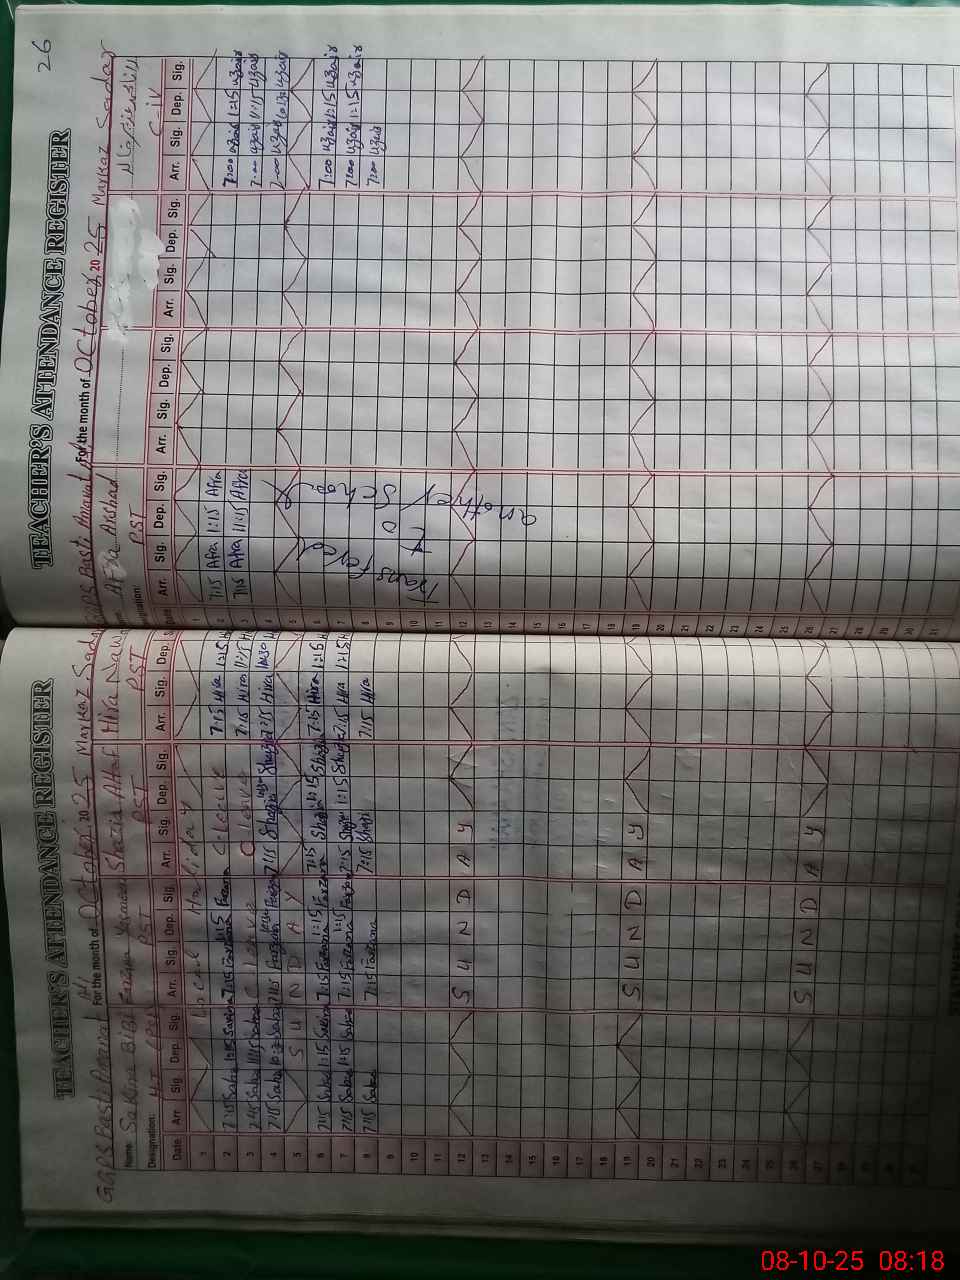 TEACHER'S ATTENDANCE REGISTER
GGPS Basti Amanat Ali For the month of October 2025 Markaz Sadar
Name: Sakina BiBi Farzana Yasmeen Shazia Altaf Hira Nawaz
Designation: PST PST PST
Date Arr. Sig. Dep. Sig. Arr. Sig. Dep. Sig. Arr. Sig. Dep. Sig. Arr. Sig. Dep.
1 Local Holiday
2 7:15 Sakina 1:15 Sakina 7:15 Farzana 1:15 Farzana C leave 7:15 Hira 1:15
3 7:15 Sakina 11:15 Sakina C leave C leave 7:15 Hira 11:15
4 7:15 Sakina Sakina 7:15 Farzana Farzana 7:15 Shazia Shazia 7:15 Hira 10:30
5 S U N D A Y
6 7:15 Sakina 1:15 Sakina 7:15 Farzana 1:15 Farzana 7:15 Shazia 1:15 Shazia 7:15 Hira 1:15
7 7:15 Sakina 1:15 Sakina 7:15 Farzana 1:15 Farzana 7:15 Shazia 1:15 Shazia 7:15 Hira 1:15
8 7:15 Sakina 7:15 Farzana 7:15 Shazia 7:15 Hira
9
10
11
12 S U N D A Y
13
14
15
16
17
18
19 S U N D A Y
20
21
22
23
24
25
26 S U N D A Y
27
26
TEACHER'S ATTENDANCE REGISTER
GGPS Basti Amanat Ali For the month of October 2025 Markaz Sadar
Afra Arshad
PST C-iv
Arr. Sig. Dep. Sig. Arr. Sig. Dep. Sig. Arr. Sig. Dep. Sig. Arr. Sig. Dep. Sig.
1
2 7:15 Afra 1:15 Afra 7:00 uzair 1:15 uzair
3 7:15 Afra 11:15 Afra 7:00 uzair 11:15 uzair
4 7:00 uzair uzair
5
6 7:00 uzair 1:15 uzair
7 7:00 uzair 1:15 uzair
8 7:00 uzair
Transfered to another School
9
10
11
12
13
14
15
16
17
18
19
20
21
22
23
24
25
26
27
28
29
30
31
08-10-25 08:18